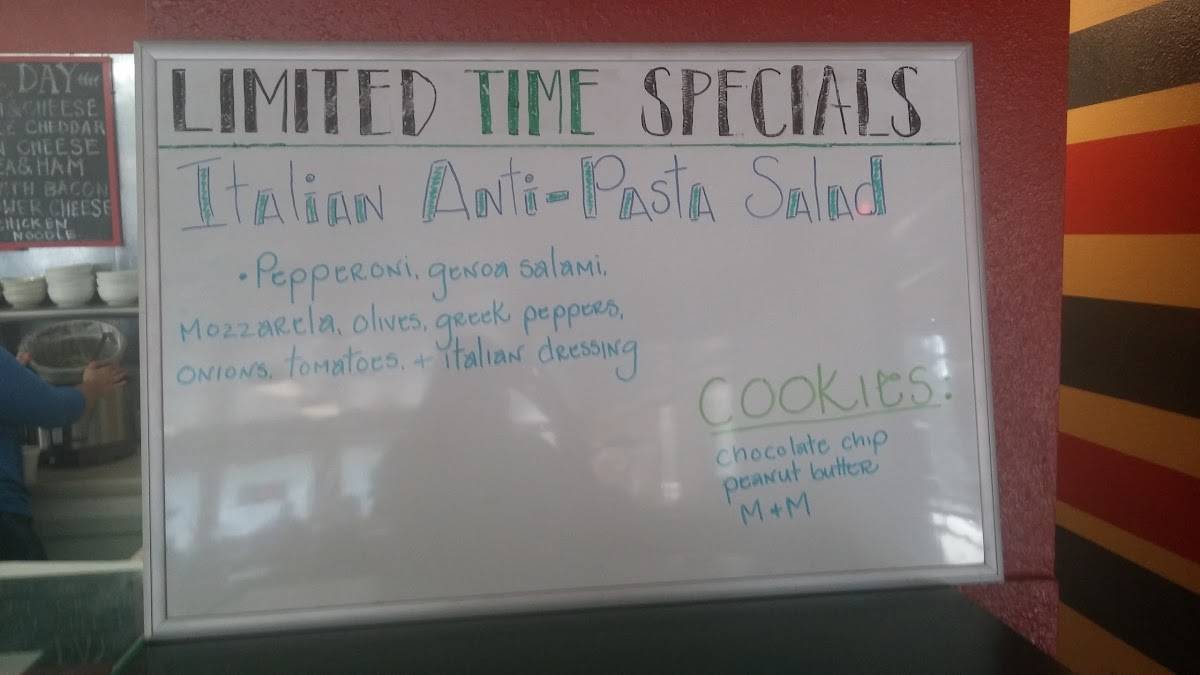 LIMITED TIME SPECIALS
Italian Anti-Pasta Salad
• Pepperoni, genoa salami,
Mozzarela, olives, greek peppers,
onions, tomatoes, + italian dressing
COOKIES:
chocolate chip
peanut butter
M+M
DAY
& CHEESE
CHEDDAR
CHEESE
& HAM
BACON
CHEESE
CHICKEN
NOODLE